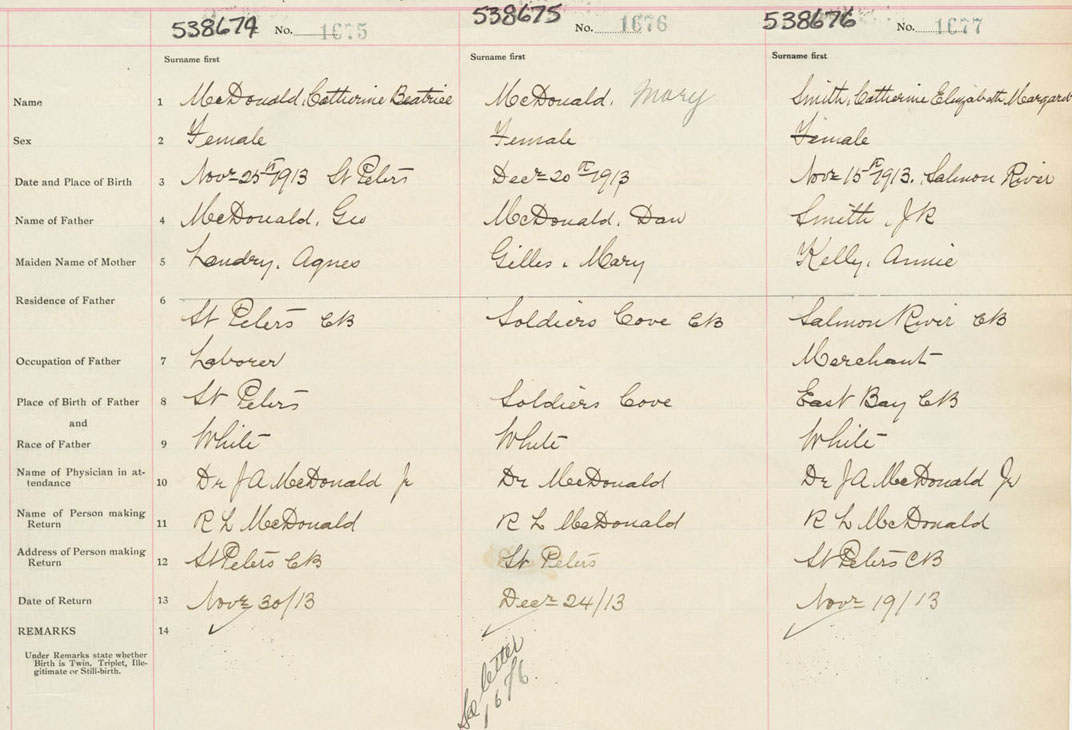 538674 No. 1675 538675 No. 1676 538676 No. 1677
Surname first Surname first Surname first
Name 1 McDonald, Catherine Beatrice McDonald, Mary Smith, Catherine Elizabeth Margaret
Sex 2 Female Female Female
Date and Place of Birth 3 Novr 25th 1913 St Peters Decr 20th 1913 Novr 15th 1913. Salmon River
Name of Father 4 McDonald, Geo McDonald, Dan Smith, JR
Maiden Name of Mother 5 Landry, Agnes Gilles, Mary Kelly, Annie
Residence of Father 6
St Peters CB Soldiers Cove CB Salmon River CB
Occupation of Father 7 Laborer Merchant
Place of Birth of Father 8 St Peters Soldiers Cove East Bay CB
and
Race of Father 9 White White White
Name of Physician in at-
tendance 10 Dr J A McDonald Jr Dr McDonald Dr J A McDonald Jr
Name of Person making
Return 11 R L McDonald R L McDonald R L McDonald
Address of Person making
Return 12 St Peters CB St Peters St Peters CB
Date of Return 13 Novr 30/13 Decr 24/13 Novr 19/13
REMARKS 14
Under Remarks state whether
Birth is Twin, Triplet, Ille-
gitimate or Still-birth.
See letter
1676.